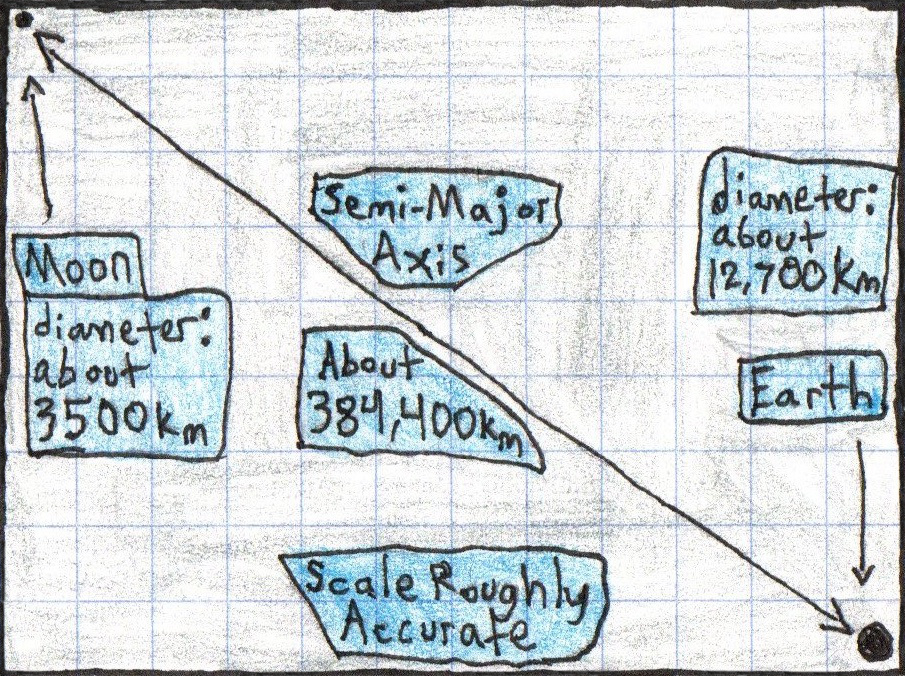 Semi-Major
Axis
diameter:
about
12,700 km
Moon
diameter:
about
3500 km
About
384,400 km
Earth
Scale Roughly
Accurate